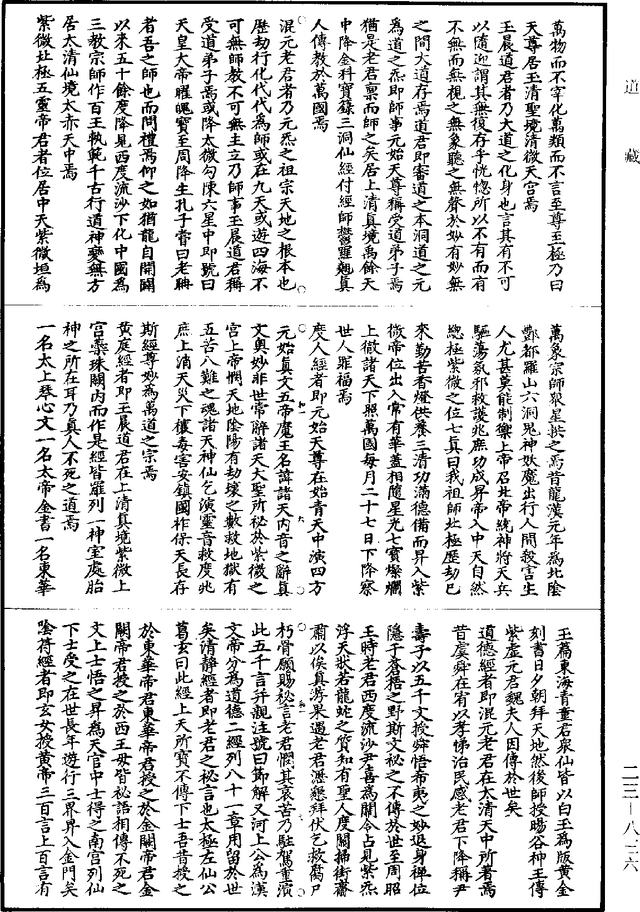 道藏
萬物而不宰化萬類而不言至尊至極乃曰
天尊居玉清聖境清微天宮焉
玉晨道君者乃大道之化身也言其有不可
以隨迎謂其無復存乎恍惚所以不有而有
不無而無視之無象聽之無聲於妙有妙無
之間大道存焉道君即審道之本洞道之元
為道之炁即師事元始天尊稱受道弟子焉
猶是老君稟而師之矣居上清真境禹餘天
中降金科寶籙三洞仙經付經師欝羅翹真
人傳教於萬國焉
混元老君者乃元炁之祖宗天地之根本也
歷劫行化代代為師或在九天或遊四海不
可無師教不可無主立乃師事玉晨道君稱
受道弟子焉或降太微勾陳六星中即號曰
天皇大帝曜魄寶至周降生孔子嘗曰老聃
者吾之師也而問禮焉仰之如猶龍自開闢
以來五十餘度降見西度流沙下化中國為
三教宗師作百王軌範千古行道神變無方
居太清仙境太赤天中焉
紫微北極五靈帝君者位居中天紫微垣為
萬象宗師眾星拱之焉昔龍漢元年為北陰
酆都羅山六洞鬼神妖魔出行人間殺害生
人尤甚莫能制禦上帝召北帝統神將天兵
驅蕩氛邪救護兆庶功成昇帝入中天自然
總極紫微之位七真曰我祖師北極歷劫已
來勤苦香燈供養三清功滿德備而昇入紫
微帝位出入常有華蓋相隨星光七寶燦爛
上徹諸天下照萬國每月二十七日下降察
世人罪福焉
度人經者即元始天尊在始青天中演四方
元始真文五帝魔王名諱諸天內音之辭真
文奧妙非世常辭諸天大聖所秘於紫微之
宮上帝憫天地陰陽有劫壞之數救地獄有
五苦八難之魂諸天神仙乞演靈音救度兆
庶上消天災下禳毒害安鎮國祚保天長存
斯經尊妙為萬道之宗焉
黃庭經者即玉晨道君在上清真境紫微上
宮蘂珠闕內而作是經皆羅列一神室處胎
神之所在耳乃真人不死之道焉
一名太上琴心文一名太帝金書一名東華
玉篇東海青童君眾仙皆以白玉為版黃金
刻書日夕朝拜天地然後師授暘谷神王傳
紫虛元君魏夫人因傳於世矣
道德經者即混元老君在太清天中所著焉
昔虞舜在宥以孝悌治民感老君下降稱尹
壽子以五千文授舜悟希夷之妙退身禪位
隱于蒼梧之野斯文秘之不傳於世至周昭
王時老君西度流沙尹喜為關令占見紫炁
浮天狀若龍蛇之質知有聖人度關掃街齋
肅以俟真游果遇老君湛懇拜伏乞救葛尸
朽骨願賜秘言老君憫其哀苦乃駐駕重演
此五千言幷親注號曰節解又河上公為漢
文帝分為道德二經列八十一章用留於世
矣清靜經者即老君之秘言也太極左仙公
葛玄曰此經上天所寶不傳下士吾昔授之
於東華帝君東華帝君授之於金闕帝君金
闕帝君授之於西王母皆秘語相傳不死之
文上士悟之昇為天官中士得之南宮列仙
下士受之在世長年遊行三界昇入金門矣
陰符經者即玄女授黃帝三百言上百言有
二三—八三六